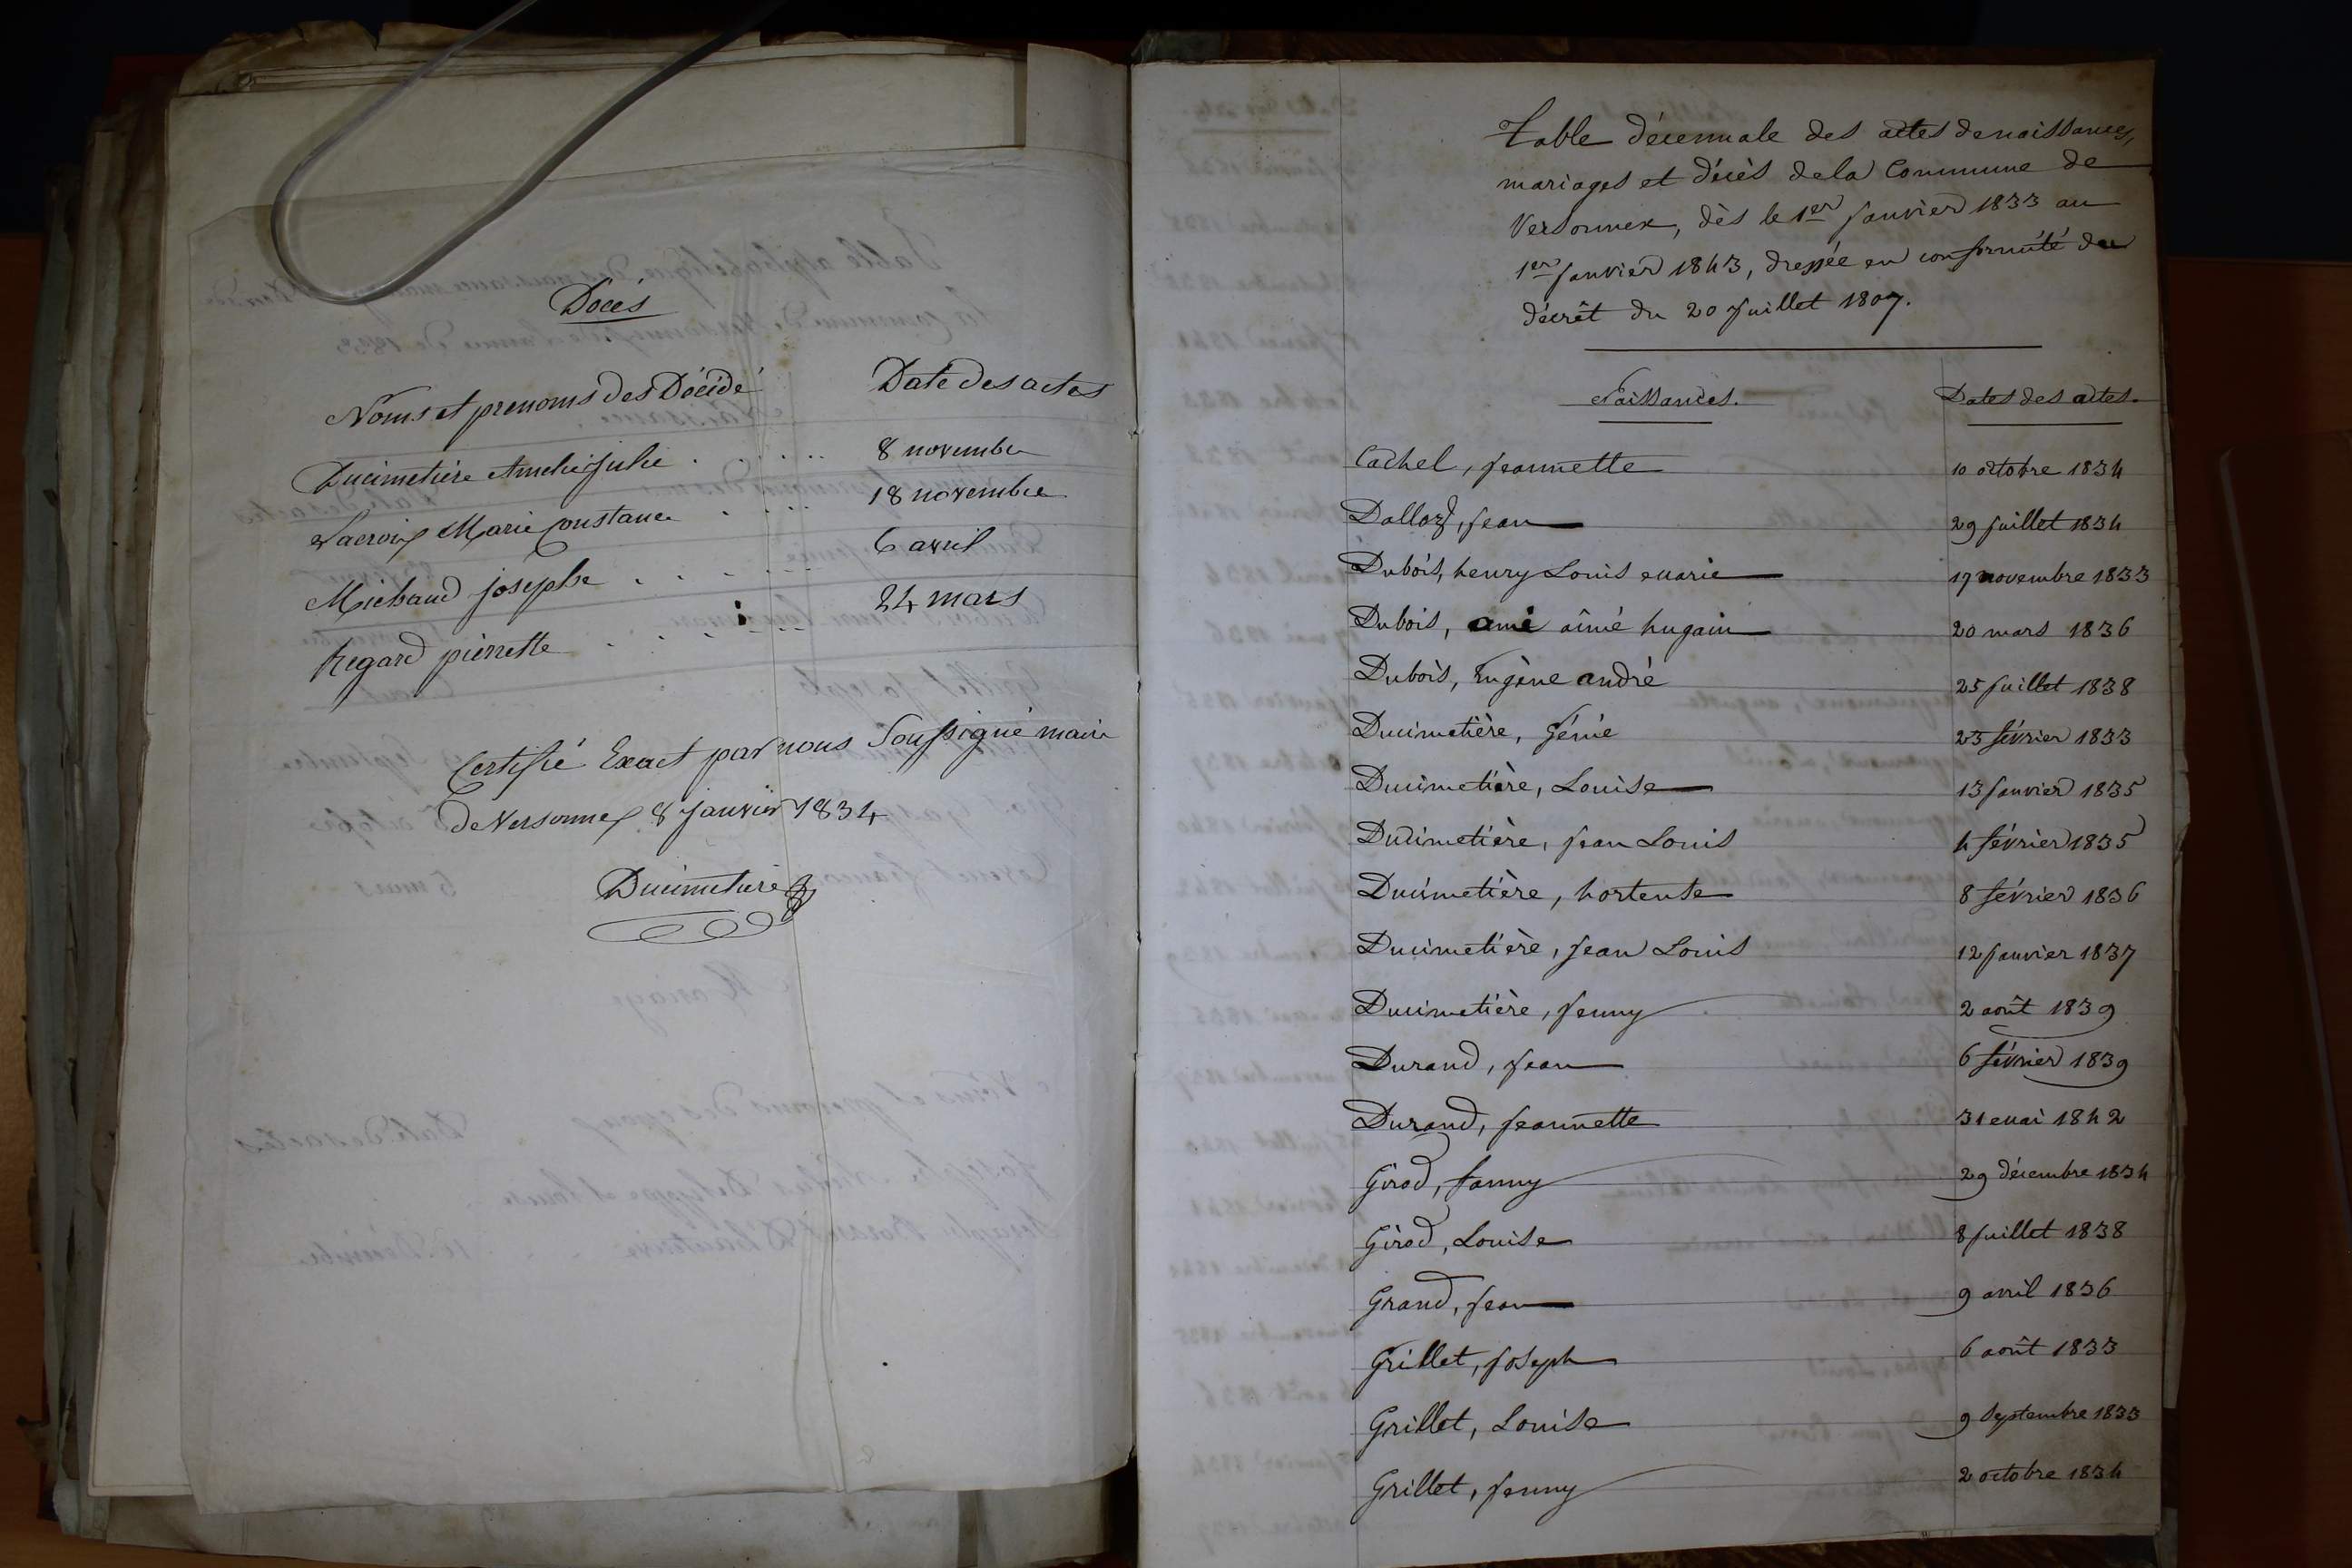 Décés
Noms et prenoms des Décédé Date des actes
Ducimetiére Amelie julie . . . . . 8 novembre
Lacroix Marie Constance . . . . 18 novembre
Michaud josephe . . . . . . 6 avril
Regard pierrette . . . . . . 24 mars
Certifié Exact par nous Soussigné maire
de Versonnex 8 janvier 1834
Ducimetiere
Table décennale des actes de naissances,
mariages et décès de la Commune de
Versonnex, dès le 1er Janvier 1833 au
1er Janvier 1843, dressée en conformité du
décrêt du 20 Juillet 1807.
Naissances. Dates des actes.
Cachel, Jeannette 10 octobre 1834
Dalloz, Jean 29 Juillet 1834
Dubois, henry Louis marie 17 novembre 1833
Dubois, ami aîmé hugain 20 mars 1836
Dubois, Eugène andré 25 Juillet 1838
Ducimetière, Génie 23 février 1833
Ducimetière, Louise 13 Janvier 1835
Ducimetière, Jean Louis 4 février 1835
Ducimetière, hortense 8 février 1836
Ducimetière, Jean Louis 12 Janvier 1837
Ducimetière, Jenny 2 août 1839
Durand, Jean 6 février 1839
Durand, Jeannette 31 mai 1842
Girod, fanny 29 décembre 1834
Girod, Louise 8 Juillet 1838
Grand, Jean 9 avril 1836
Grillet, Joseph 6 août 1833
Grillet, Louise 9 Septembre 1833
Grillet, Jenny 2 octobre 1834